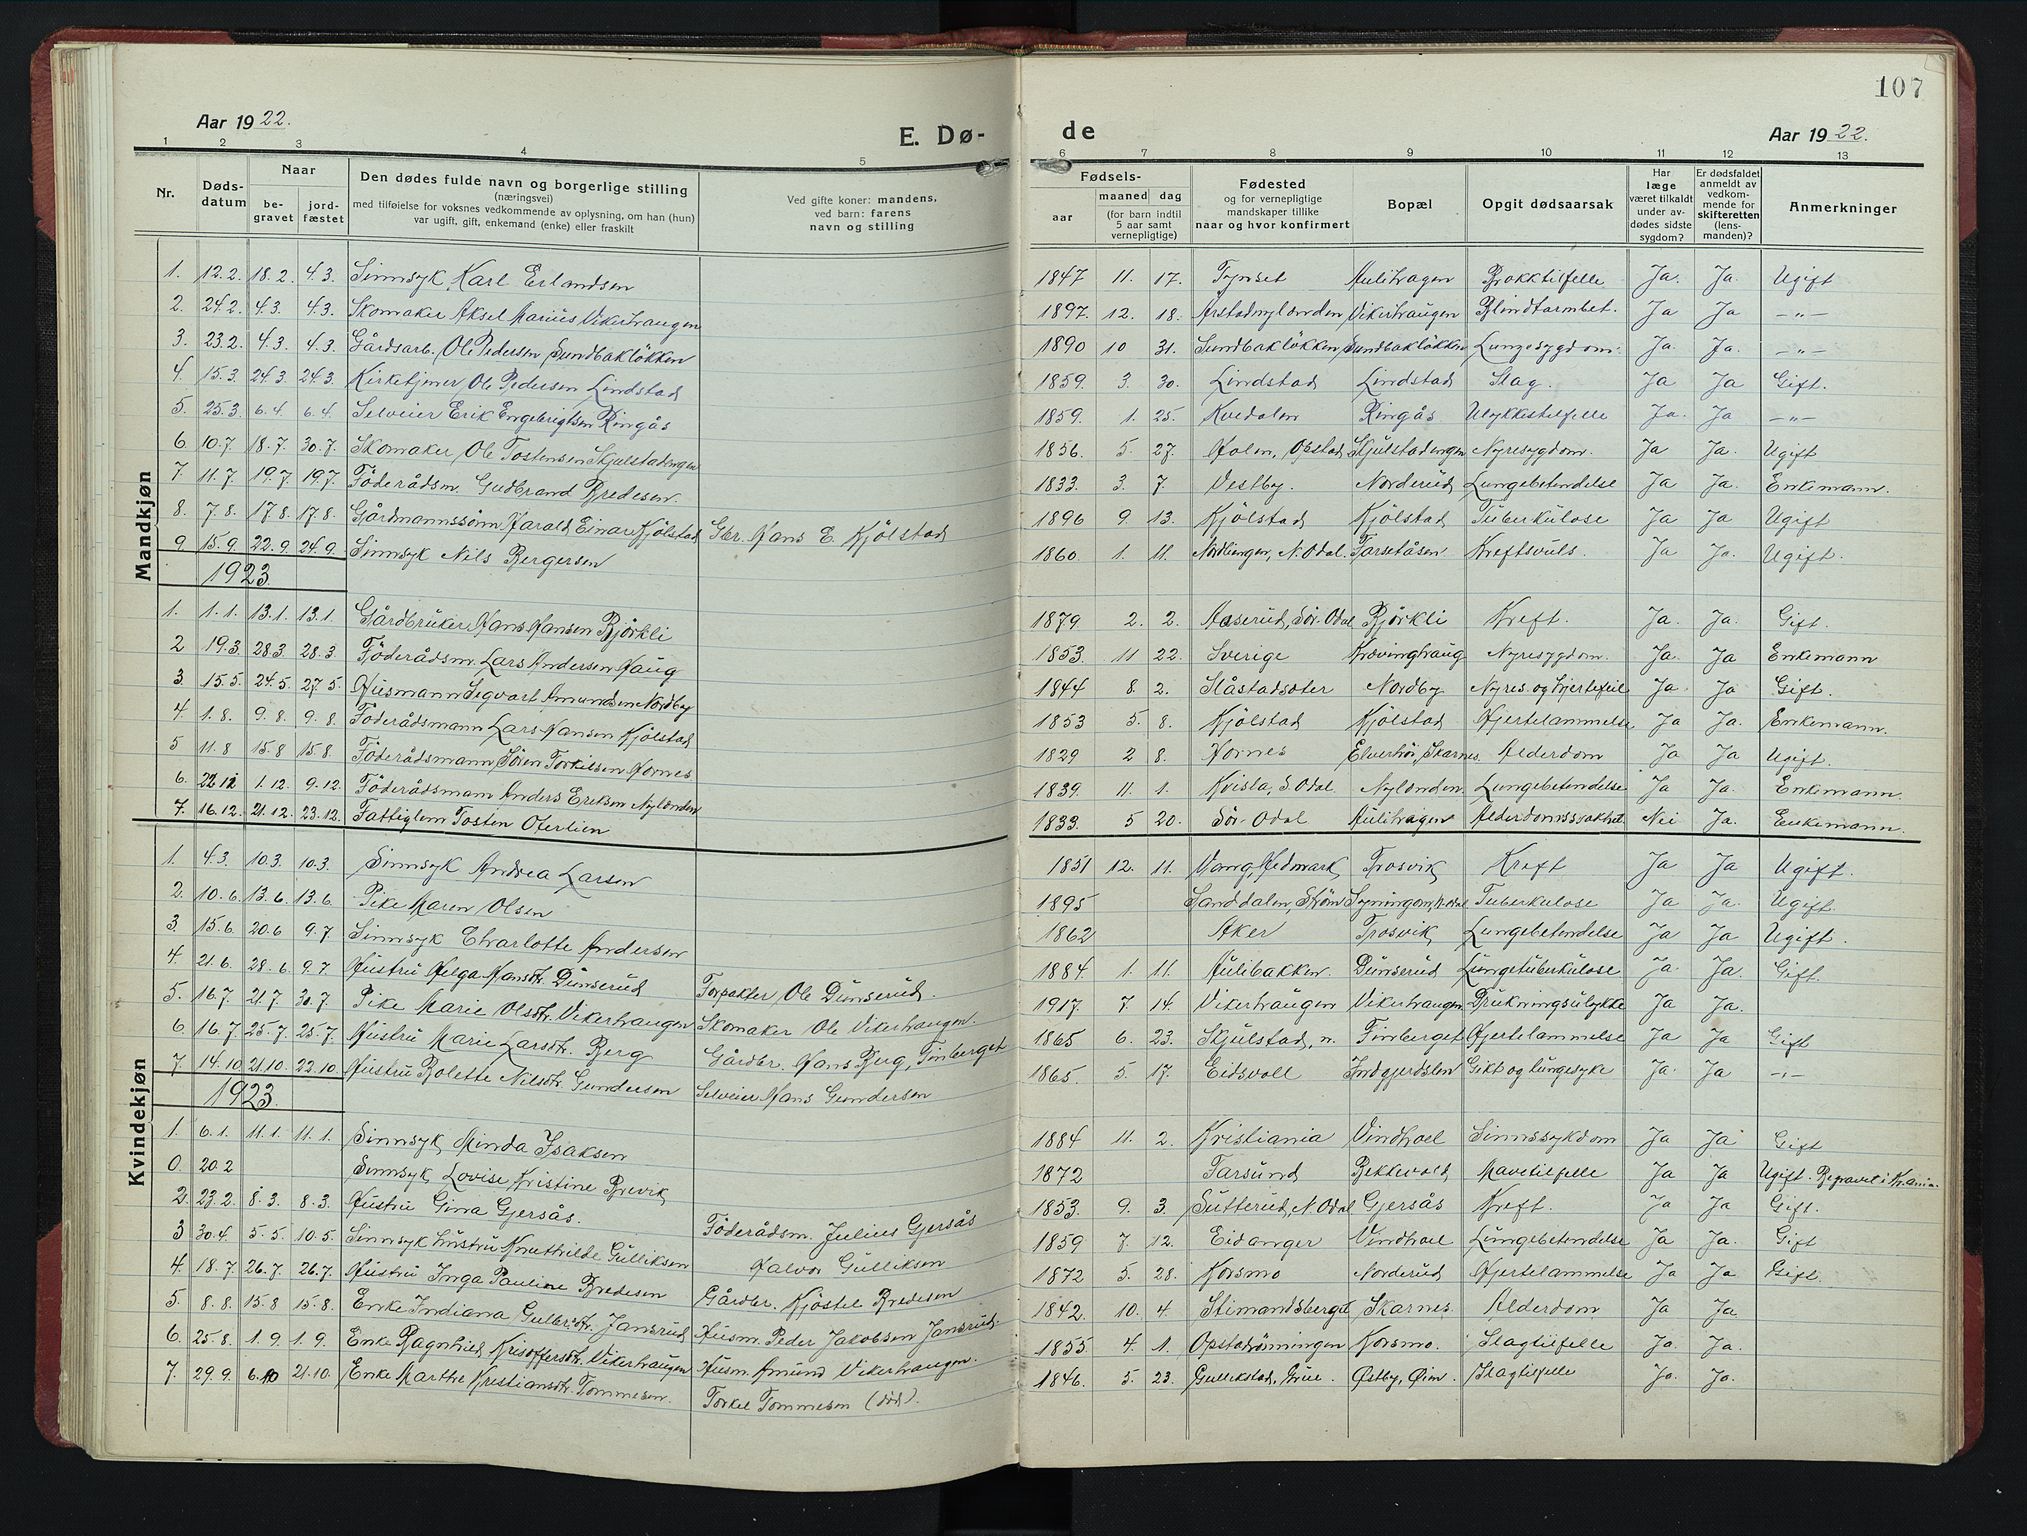 107
Aar 1922.
E. Dø-
de
Aar 1922.
1 2 3 4 5 6 7 8 9 10 11 12 13
Nr.
Døds-
datum
Naar
be-
gravet
jord-
fæstet
Den dødes fulde navn og borgerlige stilling
(næringsvei)
med tilføielse for voksnes vedkommende av oplysning, om han (hun)
var ugift, gift, enkemand (enke) eller fraskilt
Ved gifte koner: mandens,
ved barn: farens
navn og stilling
Fødsels-
aar
maaned
dag
(for barn indtil
5 aar samt
vernepligtige)
Fødested
og for vernepligtige
mandskaper tillike
naar og hvor konfirmert
Bopæl
Opgit dødsaarsak
Har
læge
været tilkaldt
under av-
dødes sidste
sygdom?
Er dødsfaldet
anmeldt av
vedkom-
mende for
skifteretten
(lens-
manden)?
Anmerkninger
Mandkjøn
1. 12.2. 18.2. 4.3. Sinnsyk Karl Erlandsen 1847 11. 17. Tynset Aulihagen Brokktilfelle Ja. Ja. Ugift
2. 24.2. 4.3. 4.3. Skomaker Aksel Marius Vikerhaugen 1897 12. 18. Vikerhaugen Blindtarmbet. Ja Ja —„—
3. 23.2. 4.3. 4.3. Gårdsarb. Ole Pedersen Sundbakløkken 1890 10 31. Sundbakløkken Sundbakløkken Lungesygdom. Ja. Ja. —„—
4. 15.3. 24.3. 24.3. Kirketjener Ole Pedersen Lindstad 1859. 3. 30. Lindstad Lindstad Slag. Ja Ja Gift.
5. 25.3. 6.4. 6.4. Selveier Erik Engebrigtsen Ringås 1859. 1. 25. Kvedalen Ringås Ulykkestilfelle Ja. Ja —„—
6. 10.7. 18.7. 30.7. Skomaker Ole Tostensen Skjulstadengen 1856. 5. 27. Opstad Skjulstadengen Nyresygdom. Ja Ja Ugift
7 11.7. 19.7 19.7 Föderådsm. Gudbrand Bredesen 1833. 3. 7. Vestby. Norderud Lungebetendelse Ja Ja. Enkemann.
8. 7.8. 17.8. 17.8. Gårdmannssønn Harald Einar Kjölstad Gbr. Hans E. Kjölstad 1896 9 13. Kjölstad Kjölstad Tuberkulose Ja Ja Ugift
9. 15.9. 22.9. 24.9. Sinnsyk Nils Bergersen 1860. 1. 11. N. Odal Farsetåsen Kreftsvuls. Ja Ja. Ugift.
1923.
1. 1.1. 13.1. 13.1. Gårdbruker Hans Hansen Björkli 1879 2. 2. Aaserud, Sör-Odal Björkli Kreft. Ja. Ja. Gift.
2 19.3. 28.3. 28.3. Föderådsm. Lars Andersen Haug 1853. 11 22. Sverige Nyresygdom. Ja. Ja Enkemann
3. 15.5. 24.5. 27.5. Husmann Segvart Amundsen Nordby 1844 8. 2. Slåstadsæter Nordby Nyres. og hjertefeil Ja. Ja Gift.
4. 1.8. 9.8. 9.8. Föderådsmann Lars Hansen Kjölstad 1853 5. 8. Kjölstad Kjölstad Hjertelammelse Ja Ja. Enkemann.
5 11.8 15.8 15.8. Föderådsmann Sören Torkelsen Hornes 1829 2 8. Hornes Skarnes. Alderdom Ja Ja Ugift.
6. 22.12 1.12. 9.12. Föderådsmann Anders Eriksen Nylenden 1839. 11. 1. Kvisla, S. Odal Nylenden Lungebetendelse Ja Ja. Enkemann.
7. 16.12. 21.12. 23.12. Fattiglem Tosten Oferlien 1833. 5 20. Sör-Odal Aulihagen Alderdomssvakhet Nei Ja. Enkemann.
Kvindekjøn
1. 4.3. 10.3. 10.3. Sinnsyk Andrea Larsen 1851 12. 11. Vang, Hedmark Trosvik Kreft Ja Ja Ugift.
2. 10.6. 13.6. 13.6. Pike Maren Olsen 1895 Sanddalen, Ström Tuberkulose Ja Ja. Ugift.
3. 15.6. 20.6 9.7 Sinnsyk Charlotte Andersen 1862 Aker Trosvik Lungebetendelse Ja Ja Ugift.
4. 21.6. 28.6. 9.7. Hustru Helga Hansdtr. Dunserud Forpakter Ole Dunserud. 1884. 1. 11. Aulibakken. Dunserud Lungetuberkulose Ja. Ja. Gift.
5. 16.7. 21.7. 30.7. Pike Marie Olsdtr. Vikerhaugen Skomaker Ole Vikerhaugen. 1917. 7 14. Vikerhaugen Vikerhaugen Drukningsulykke Ja Ja.
6. 16.7. 25.7. 25.7. Hustru Marie Larsdtr. Berg Gårdbr. Hans Berg, Finberget 1865 6. 23. Skjulstad, n. Finberget Hjertelammelse Ja Ja Gift
7. 14.10 21.10. 22.10. Hustru Bolette Nilsdtr. Gundersen Selveier Hans Gundersen 1865. 5. 17. Eidsvoll Indgjerdslen Gikt og lungesyke Ja. Ja —„—
1923.
1. 6.1. 11.1. 11.1. Sinnsyk Minda Isaksen 1884 11. 2. Kristiania Vindhoel Sinnssykdom Ja Ja Gift
0. 20.2 Sinnsyk Lovise Kristine Brevik 1872 Farsund Bekkevold Mavetilfelle Ja Ja Ugift. Begravet i Kr.ania.
2. 23.2. 8.3. 8.3. Hustru Gina Gjersås. Föderådsm. Julius Gjersås 1853. 9. 3. Sutterud, N. Odal Gjersås Kreft. Ja Ja. Gift.
3 30.4. 5.5. 10.5. Sinnsyk hustru Knuthilde Gulliksen Halvor Gulliksen 1859 7. 12. Eidanger Vindhoel Lungebetendelse Ja Ja. Gift
4. 18.7. 26.7. 26.7. Hustru Inga Pauline Bredesen Gårdbr. Kjöstel Bredesen 1872 5. 28. Korsmo Norderud Hjertelammelse Ja Ja Gift.
5. 8.8. 15.8 15.8. Enke Indiana Gulbrdtr. Jansrud Husm. Peder Jakobsen Jansrud. 1842. 10. 4. Stimandsberget Skarnes. Alderdom Ja Ja
6. 25.8. 1.9. 1.9. Enke Ragnhild Kristoffersdtr. Vikerhaugen Husm. Amund Vikerhaugen. 1855 4. 1. Opstadrönningen Korsmo. Slagtilfelle Ja. Ja.
7. 29.9. 6.10 21.10. Enke Marthe Kristiansdtr. Tommesen. Torkel Tommesen (död). 1846. 5. 23. Gullikstad, Grue. Østby, Øim. Slagtilfelle Ja. Ja.